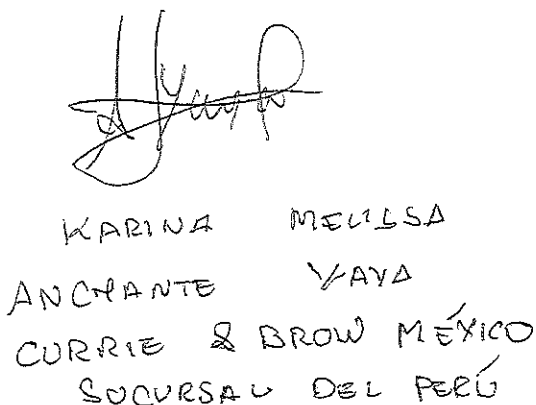 KARINA MELISSA
ANCHANTE YAYA
CURRIE & BROW MÉXICO
SUCURSAL DEL PERÚ